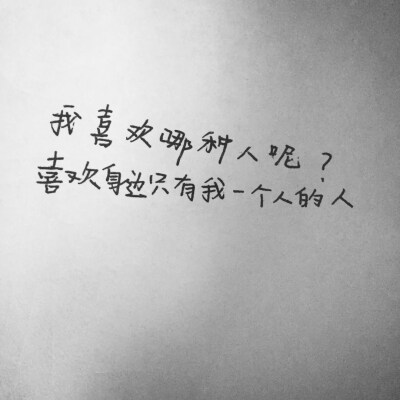 我喜欢哪种人呢？
喜欢身边只有我一个人的人